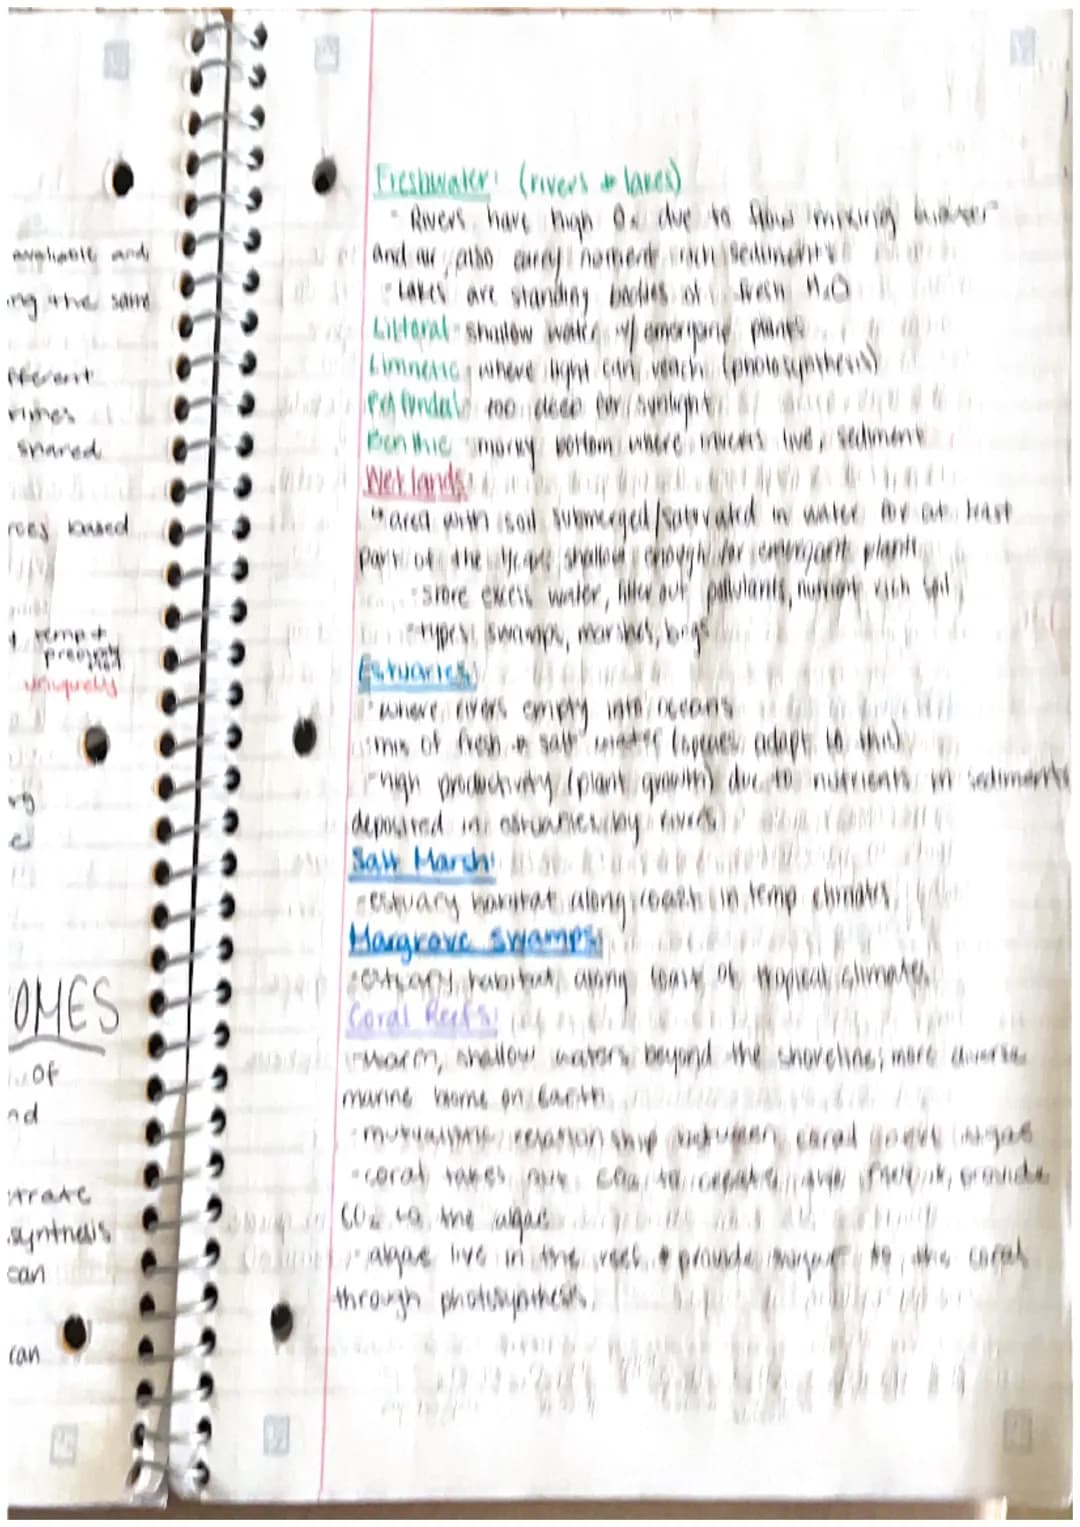 available and
ng the same
fferent
rimes
shared
rces based
temp +
uniquely
OMES
of
nd
trate
synthesis
can
can
Freshwater: (rivers + lakes)
- Rivers have high O₂ due to flow mixing water
and air, also carry nutrient rich sediments
- Lakes are standing bodies of fresh H₂O
Littoral - shallow water w/ emergent plants
Limnetic - where light can reach (photosynthesis)
Profundal - too deep for sunlight
Benthic - murky bottom where inverts live, sediment
Wetlands:
area with soil submerged/saturated in water for at least
part of the year, shallow enough for emergent plants
- store excess water, filter out pollutants, nutrient rich soil
- types: swamps, marshes, bogs
Estuaries:
- where rivers empty into oceans
- mix of fresh + salt water (species adapt to this)
- high productivity (plant growth) due to nutrients in sediments
deposited in estuaries by rivers
Salt Marsh:
- estuary habitat along coast in temp climates
Mangrove Swamps:
- estuary habitat along coast of tropical climates
Coral Reefs:
- warm, shallow waters beyond the shoreline; more diverse
marine biome on Earth
- mutualistic relationship between coral algae
- coral takes CO₂ to create provide
CO₂ to the algae
- algae live in the reef + provide sugar to the coral
through photosynthesis.